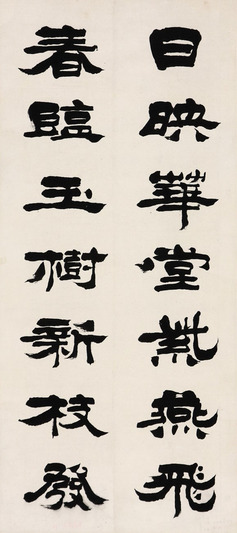 日映華堂紫燕飛
春臨玉樹新枝發